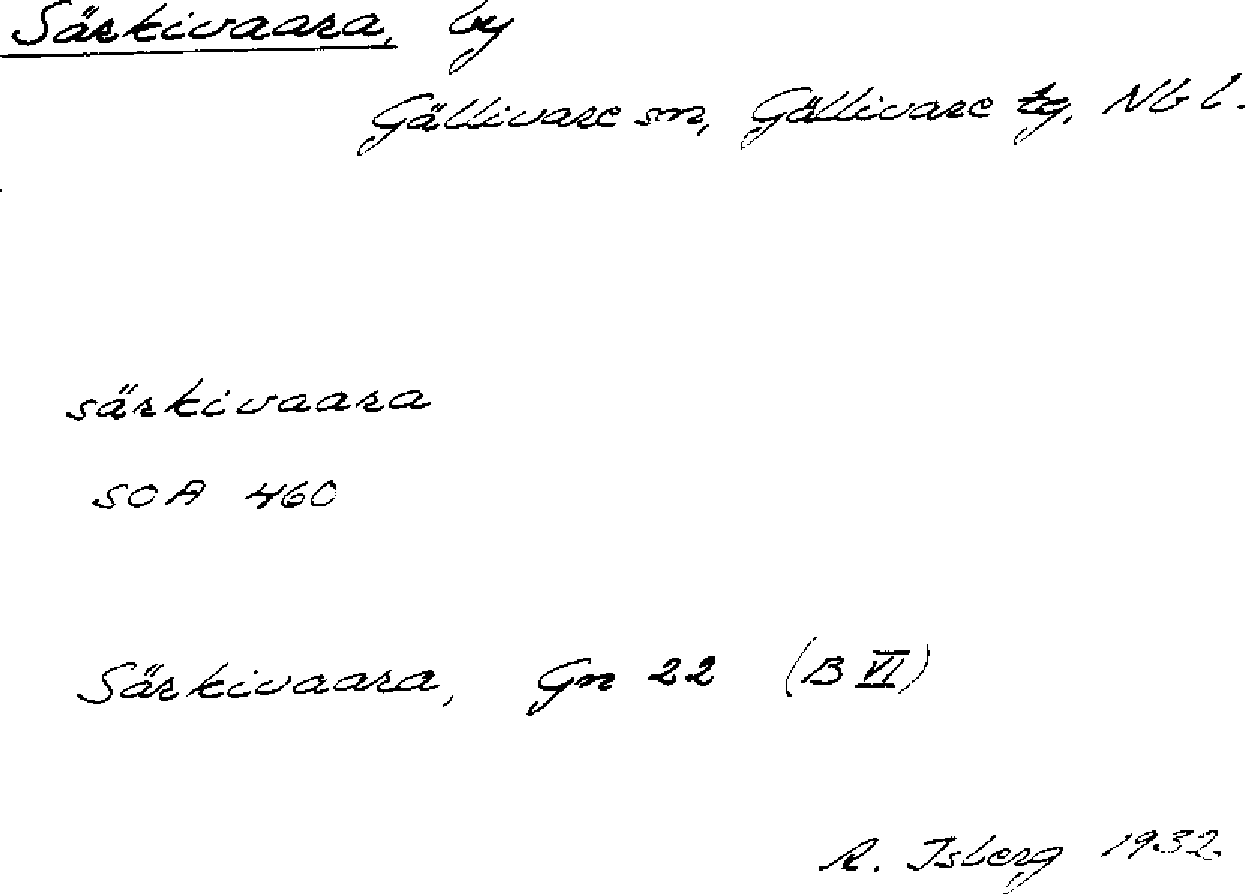 Särkivaara, by
Gällivare sn, Gällivare tg, Nb l.
särkivaara
SOA 460
Särkivaara, Gn 22 (B VI)
R. Isberg 1932.